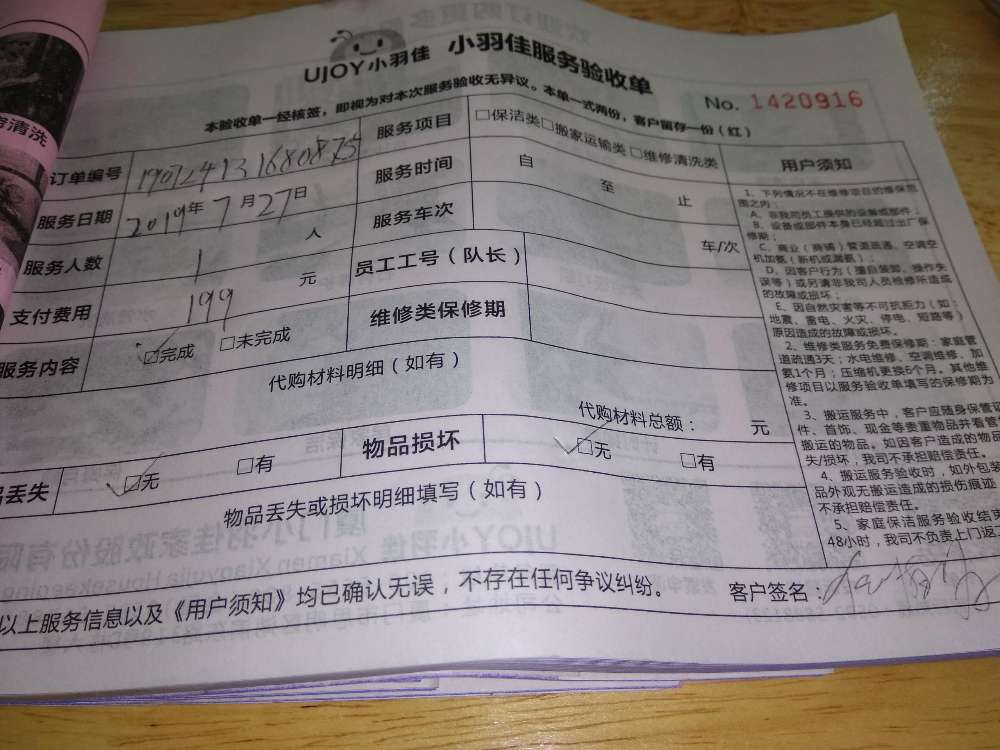 UJOY小羽佳 小羽佳服务验收单
No. 1420916
本验收单一经核签，即视为对本次服务验收无异议。本单一式两份，客户留存一份（红）
清洗
订单编号
服务项目 □保洁类□搬家运输类□维修清洗类
服务日期 2019年7月27日
服务时间 自 至 止
服务人数 1 人
服务车次 车/次
支付费用 199 元
员工工号（队长）
服务内容 ☑完成 □未完成
维修类保修期
代购材料明细（如有）
代购材料总额： 元
品丢失 ☑无 □有
物品损坏 ☑无 □有
物品丢失或损坏明细填写（如有）
以上服务信息以及《用户须知》均已确认无误，不存在任何争议纠纷。
客户签名：
用户须知
1、下列情况不在维修项目的维保范
围之内：
A、非我司员工提供的设备或部件；
B、设备或部件本身已经超过出厂保
修期；
C、商业（商铺）管道疏通、空调空
机加氨（新机或漏氨）；
D、因客户行为（擅自装卸、操作失
误等）或另请非我司人员检修所造成
的故障或损坏；
E、因自然灾害等不可抗拒力（如：
地震、雷电、火灾、停电、短路等）
原因造成的故障或损坏。
2、维修类服务免费保修期：家庭管
道疏通3天；水电维修、空调维修、加
氨1个月；压缩机更换6个月。其他维
修项目以服务验收单填写的保修期为
准。
3、搬运服务中，客户应随身保管证
件、首饰、现金等贵重物品并看管
搬运的物品。如因客户造成的物品
失/损坏，我司不承担赔偿责任。
4、搬运服务验收时，如外包装
品外观无搬运造成的损伤痕迹
不承担赔偿责任。
5、家庭保洁服务验收结束
48小时，我司不负责上门返工